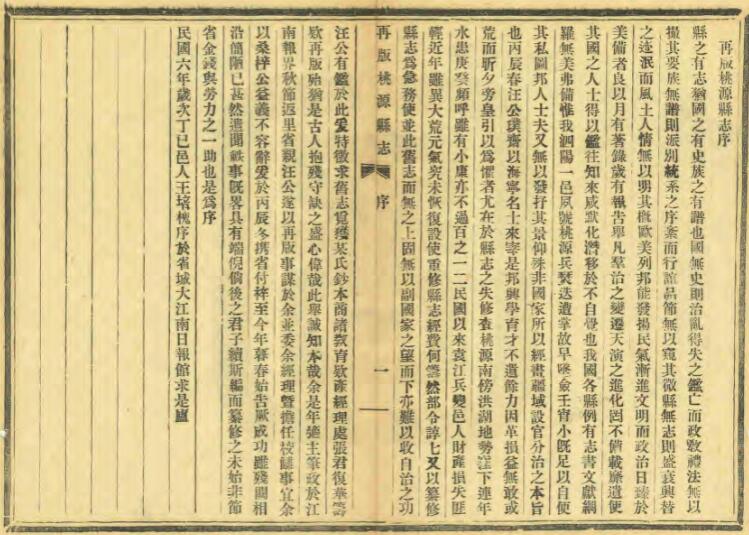 再版桃源縣志序
縣之有志猶國之有史族之有譜也國無史則治亂得失之鑑亡而政敎禮法無以
撮其要族無譜則派別統系之序紊而行誼品節無以窺其微縣無志則盛衰興替
之迹泯而風土人情無以明其槪歐美列邦能發揚民氣漸進文明而政治日臻於
美備者良以月有著錄歲有報告舉凡羣治之變遷天演之進化罔不備載靡遺使
其國之人士得以鑑往知來咸默化潛移於不自覺也我國各縣例有志書文獻網
羅無美弗備惟我泗陽一邑夙號桃源兵燹迭遭掌故早墜僉壬宵小旣足以自便
其私圖邦人士夫又無以發抒其景仰殊非國家所以經畫疆域設官分治之本旨
也丙辰春汪公璞齋以海寧名士來宰是邦興學育才不遺餘力因革損益無敢或
荒而斬夕旁皇引以爲懼者尤在於縣志之失修查桃源南傍洪湖地勢窪下連年
水患庚癸頻呼雖有小康亦不過百之一二民國以來袁江兵變邑人財產損失匪
輕近年雖異大荒元氣究未恢復設使重修縣志經費何籌然部令諄七又以纂修
縣志爲急務使並此舊志而無之上固無以副國家之望而下亦難以收自治之功
再版桃源縣志 序 一
汪公有鑑於此爰特徵求舊志覓獲某氏鈔本商諸敎育欵產經理處張君復華籌
欵再版殆猶是古人抱殘守缺之盛心偉哉此舉誠知本哉余是年適主筆政於江
南報界秋節返里省親汪公遂以再版事謀於余並委余經理暨擔任校讎事宜余
以桑梓公益義不容辭爰於丙辰冬攜省付梓至今年暮春始告厥成功雖殘闕相
沿簡陋已甚然遺聞軼事旣畧具有端倪倘後之君子續斯編而纂修之未始非節
省金錢與勞力之一助也是爲序
民國六年歲次丁巳邑人王培槐序於省城大江南日報館求是廬